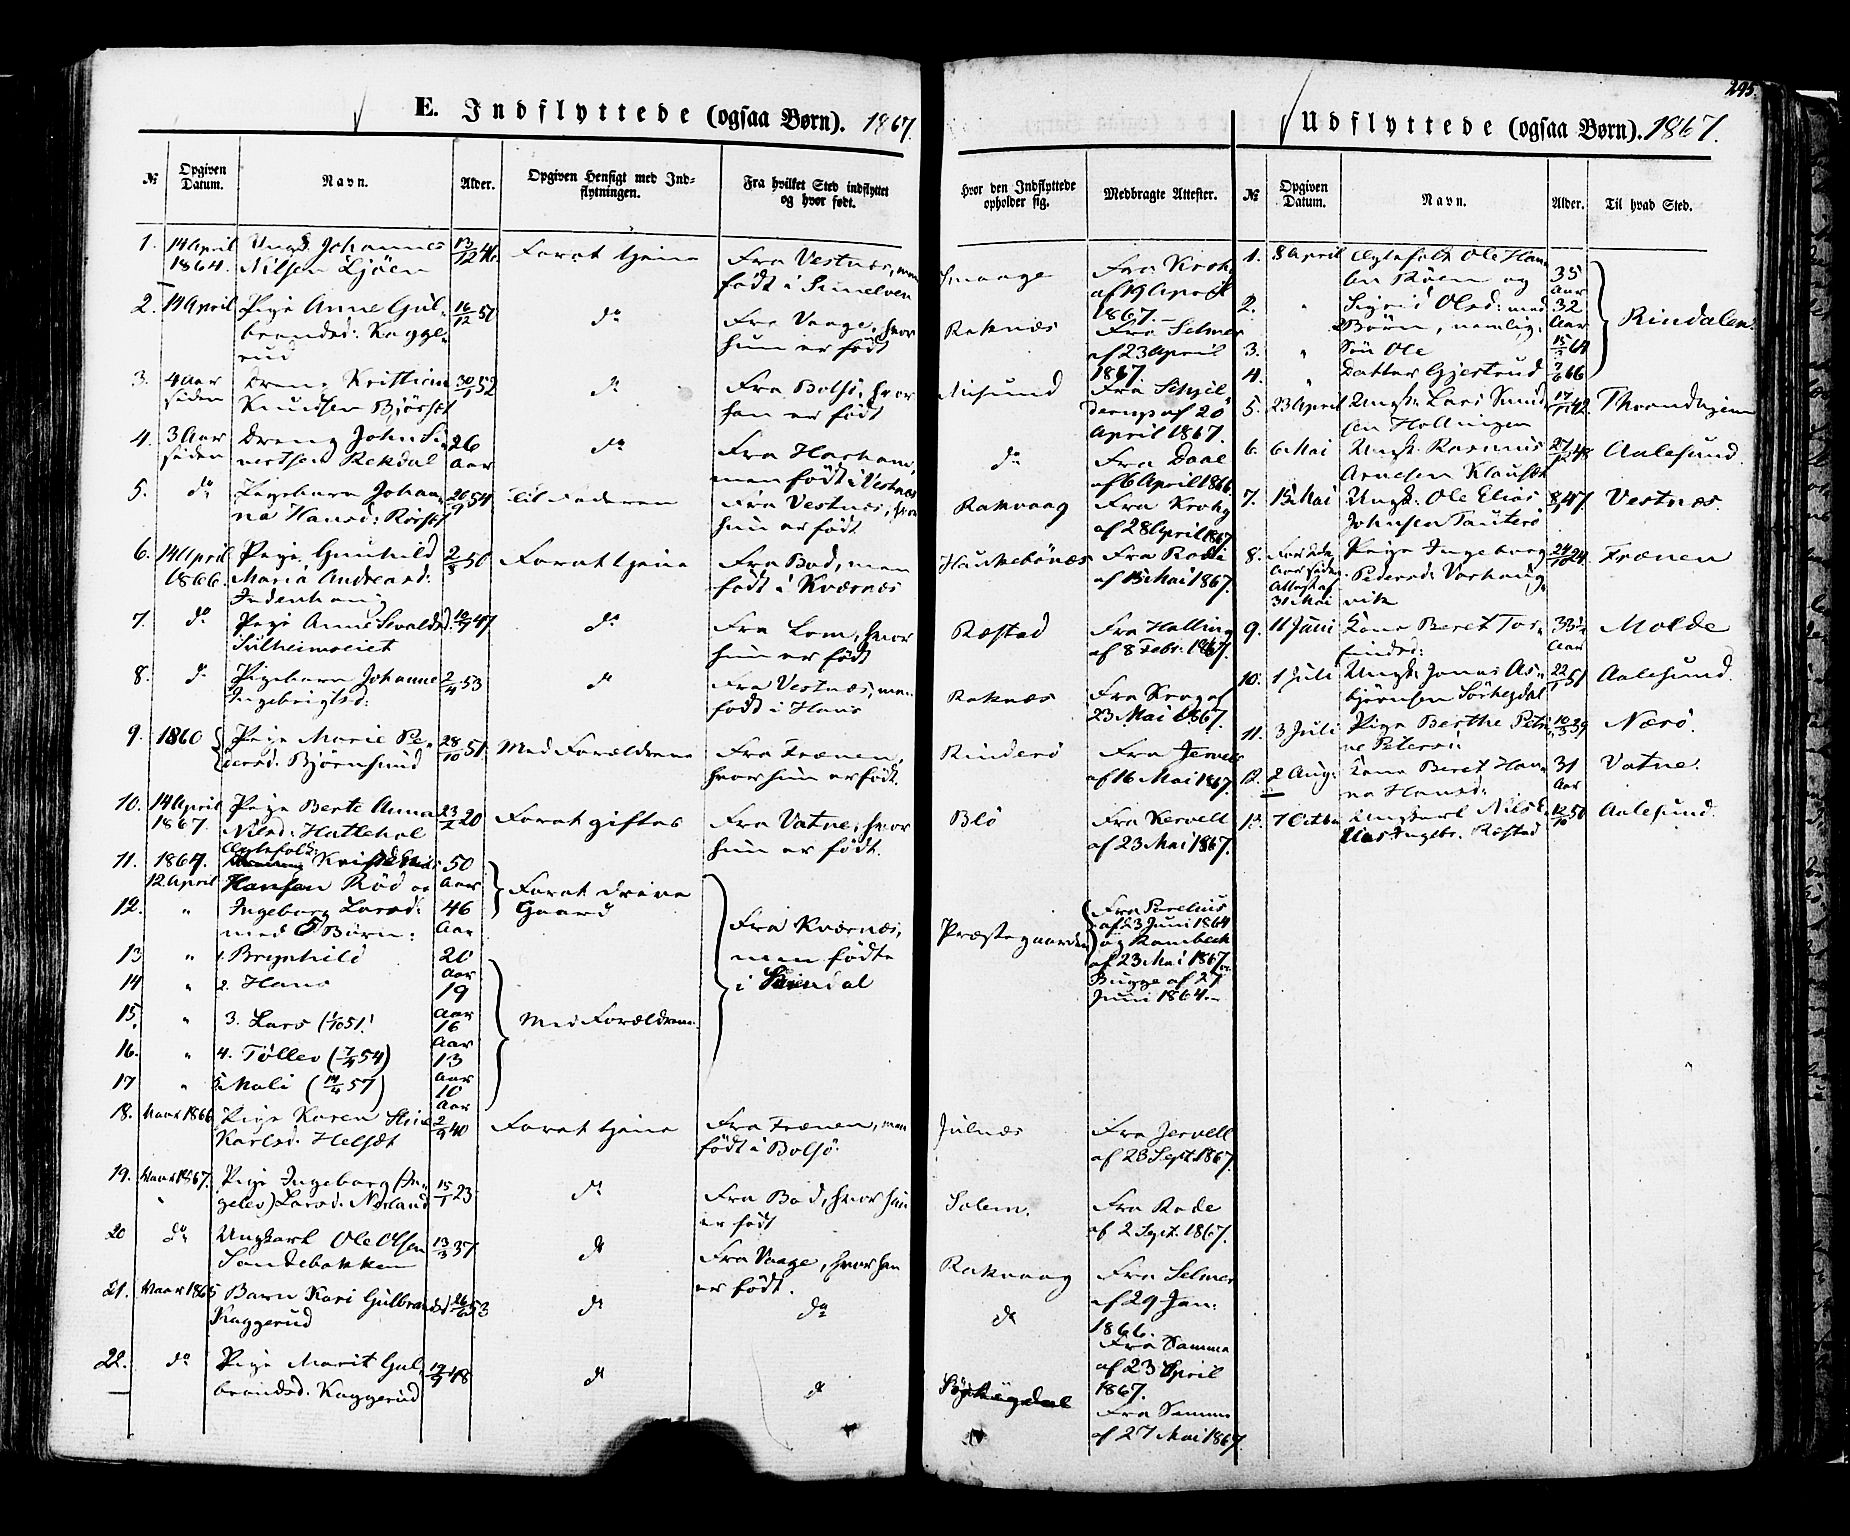 E. Indflyttede (ogsaa Børn). 1867.
№
Opgiven Datum.
Navn.
Alder.
Opgiven Hensigt med Ind=
flytningen.
Fra hvilket Sted indflyttet
og hvor født.
Hvor den Indflyttede
opholder sig.
Medbragte Attester.
1. 14 April 1864. Ungk Johannes Nilsen 13/12 46. For at tjene Fra Vestnæs, men født i Sunelven Smaage Fra Krohg af 19 April 1867.
2. 14 April Pige Anne Gulbrandsd: Kaggerud 16/12 50 do Fra Vaage, hvor hun er født Raknæs Fra Selmer af 23 April 1867
3. 4 Aar siden Dreng Kristian Knudsen Bjørset 30/1 52 do Fra Bolsø, hvor han er født Misund af 20 April 1867.
4. 3 Aar siden Dreng John Sivertsen Rekdal 26 Aar do Fra Harham, men født i Vestnæs do Fra Daae af 6 April 1866.
5. do Pigebarn Johanna Hansd: Rørset 20/9 54 Til Faderen Fra Vestnæs, hvor hun er født Rakvaag Fra Krohg af 28 April 1867
6. 14 April 1866. Pige Gunhild Maria Andreasd: Indenhoug 2/3 50 For at tjene Fra Bod, men født i Kværnæs Haukebønæs Fra Rode af 15 Mai 1867.
7. do Pige Anne Sevaldsd. Sulheimseiet 12/7 47 do Fra Lom, hvor hun er født Ræstad Fra Halling af 8 Febr. 1867.
8. do Pigebarn Johanne Ingebrigtsd: 2/4 53 do Fra Vestnæs, men født i Hans Raknæs Fra Krog af 23 Mai 1867.
9. 1860 Pige Marie Pedersd. Bjørnsund 28/10 51. Med Forældrene Fra Frænen, hvor hun er født. Rinderø Fra Jervell af 16 Mai 1867.
10. 14 April 1867. Pige Berte Anna Nilsd: Hattehol 23/2 20 For at giftes Fra Vatne, hvor hun er født. Blø Fra Kervell af 23 Mai 1867.
11. 1864. 12 April Ægtefolk Hansen Rød og 50 Aar For at drive Gaard Fra Kværnæs, men fødte i Præstegaarden Fra Parelius af 23 Juni 1864 og Rambech af 23 Mai 1867 Bugge af 27 Juni 1864.
12. " Ingeborg Larsd: med 5 Børn: 46 Aar
13 " 1. Brynhild 20 Aar
14 " 2. Hans 19 Aar
15. " 3. Lars (1/10 51) 16 Aar Med Forældrene
16. " 4. Tøllev (7/4 54) 13 Aar
17 " 5. Mali (14/4 57) 10 Aar
18. Vaar 1866 Pige Karen Stine Karlsd. Helset 2/9 40 For at tjene Fra Frænen, men født i Bolsø. Julnæs Fra Jervell af 23 Sept. 1867.
19. Vaar 1867. Pige Ingeborg (Ingelev) Larsd. Norland 15/1 23 do Fra Bod, hvor hun er født Solem. Fra Rode af 2 Sept. 1867.
20 do Ungkarl Ole Olsen Sandebakken 13/3 37 do Fra Vaage, hvor han er født. Rakvaag Fra Selmer af 29 Jan: 1866.
21. Vaar 1865 Barn Kari Gulbrandsd Kaggerud 26/6 53 do do do Fra Samme af 23 April 1867.
22. do Pige Marit Gulbrandsd. Kaggerud 19/7 48 do do Fra Samme af 27 Mai 1867
295.
Udflyttede (ogsaa Børn). 1867.
№
Opgiven Datum.
Navn.
Alder.
Til hvad Sted.
1. 8 April Ægtefolk Ole Hansen Røen og 35 Aar Rindalen
2. " Sigrid Olsd: med 2 Børn, nemlig: 32 Aar
3. " Søn Ole 64
4. " Datter Gjertrud 66
5. 23 April Ungk. Lars Knudsen Hollingen 42. Throndhjem
6. 6 Mai Ungk. Rasmus Arnesen Klauset 48 Aalesund.
7. 15 Mai Ungk. Ole Elias Johnsen Tauterø 47. Vestnæs.
8. Attest af 31 Mai Pige Ingeborg Pedersd: Varhaugvik 24/12 24. Frænen
9. 11 Juni Kone Beret Torfindsd: 33½ Aar Molde
10. 1 Juli Ungk. Jonas Asbjørnsen Sørhegdal 22/1 51 Aalesund.
11. 3 Juli Pige Berthe Petrine Petersd: 10/3 39 Nærø.
12. 2 Aug: Kone Beret Hanna Hansd: 31 Aar Vatne.
13. 7 Octbr Ungkarl Nils Ræstad 12/10 50 Aalesund.